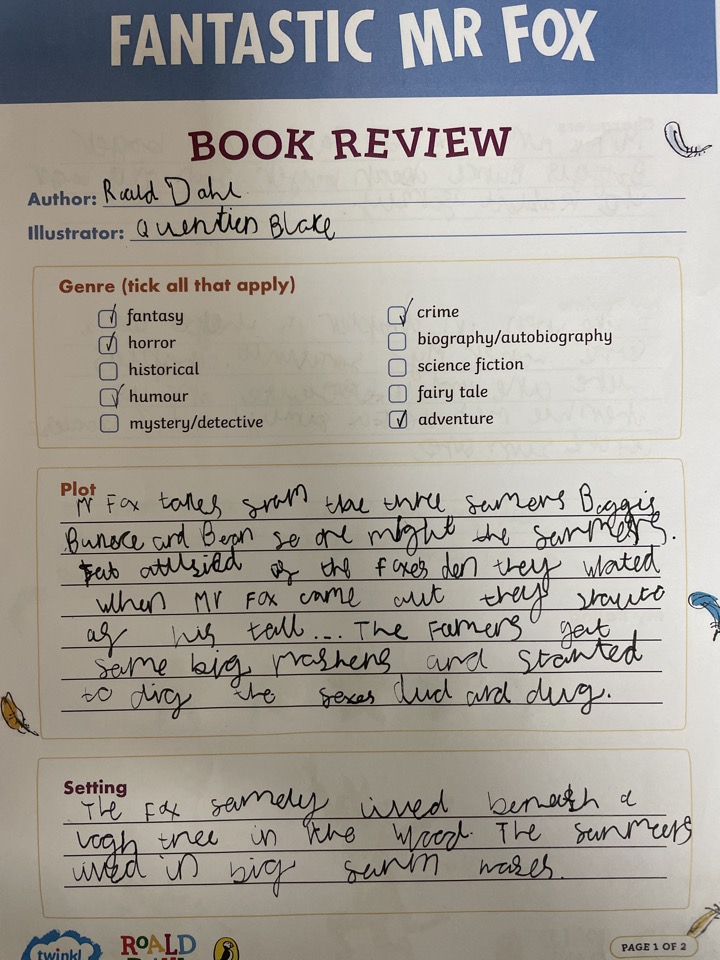 FANTASTIC MR FOX
BOOK REVIEW
Author: Roald Dahl
Illustrator: Quentien Blake
Genre (tick all that apply)
fantasy
horror
historical
humour
mystery/detective
crime
biography/autobiography
science fiction
fairy tale
adventure
Plot
Mr Fox takes from the three farmers Boggis
Bunece and Bean so one night the farmers.
sat outsied of the foxes den they wated
when Mr Fox came out they
of his tall... The Famers got
some big mashens and started
to dig the foxes dud and dug.
Setting
The Fox famely lived beneath a
tree in the Wood. The farmers
lived in big farm
twinkl
ROALD
DAHL
PAGE 1 OF 2